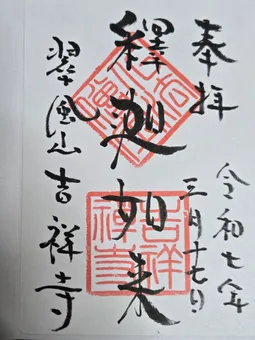 奉拝
令和七年
三月十七日
釋迦如来
翠凰山吉祥寺
吉祥禅寺